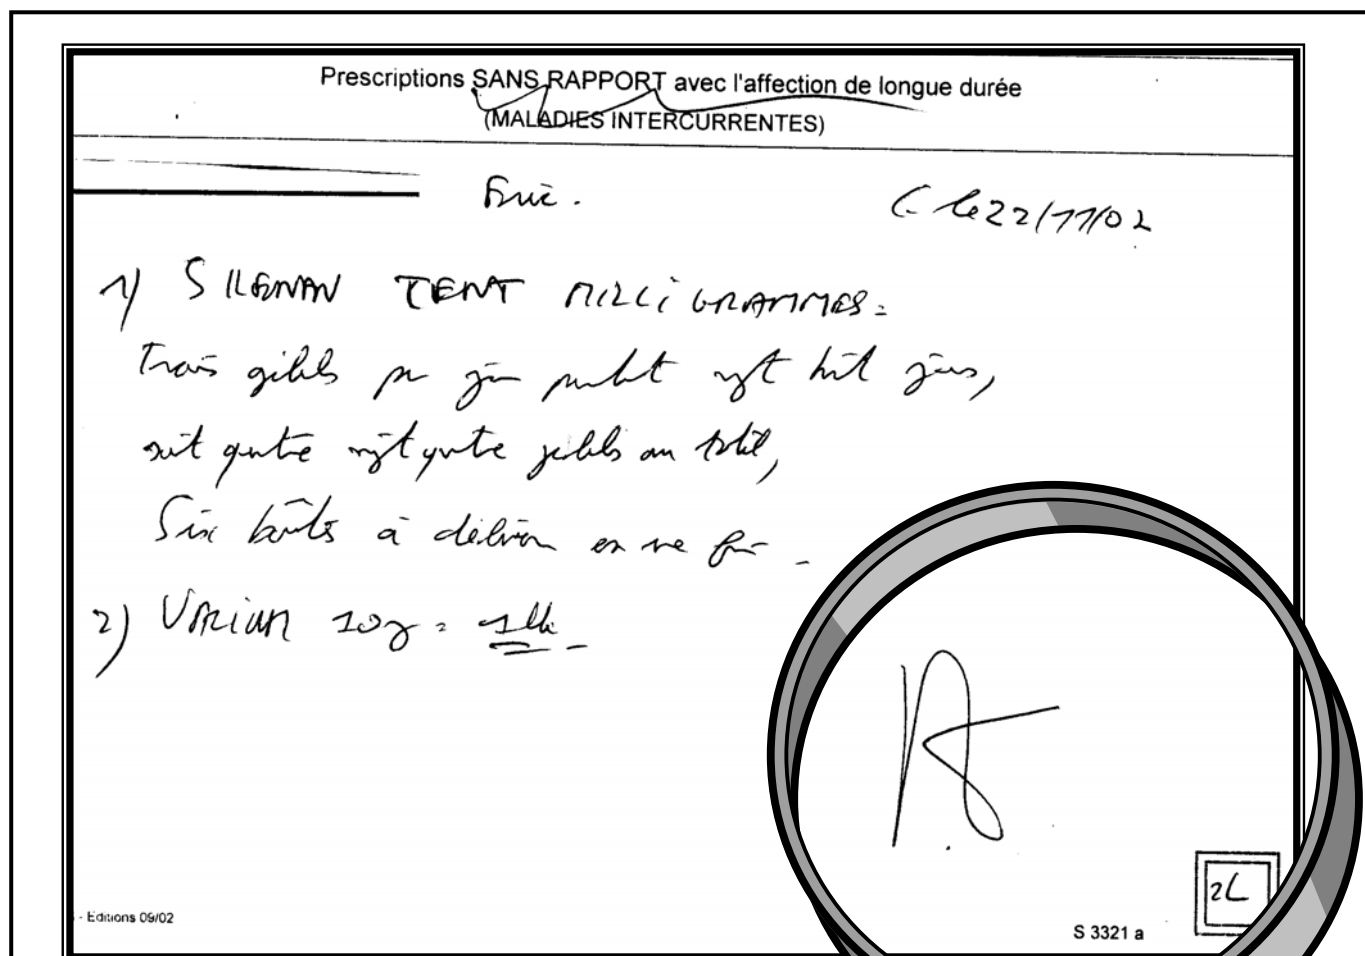 Prescriptions SANS RAPPORT avec l'affection de longue durée
(MALADIES INTERCURRENTES)
le 22/11/02
1) SKENAN CENT MILLIGRAMMES =
Trois gélules par jour pendant vingt huit jours,
soit quatre vingt quatre gélules au total,
Six boîtes à délivrer en une fois -
2) 10g = 1
2L
- Editions 09/02
S 3321 a